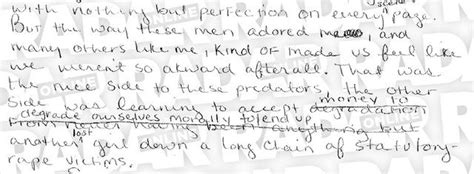 with nothing but perfection on every page.
But the way these men adored me, and
many others like me, kind of made us feel like
we weren't so akward afterall. That was
the nice side to these predators, the other
side was learning to accept money to
degrade ourselves morally to end up
another lost girl down a long chain of statutory-
rape victims.
RADAR
ONLINE